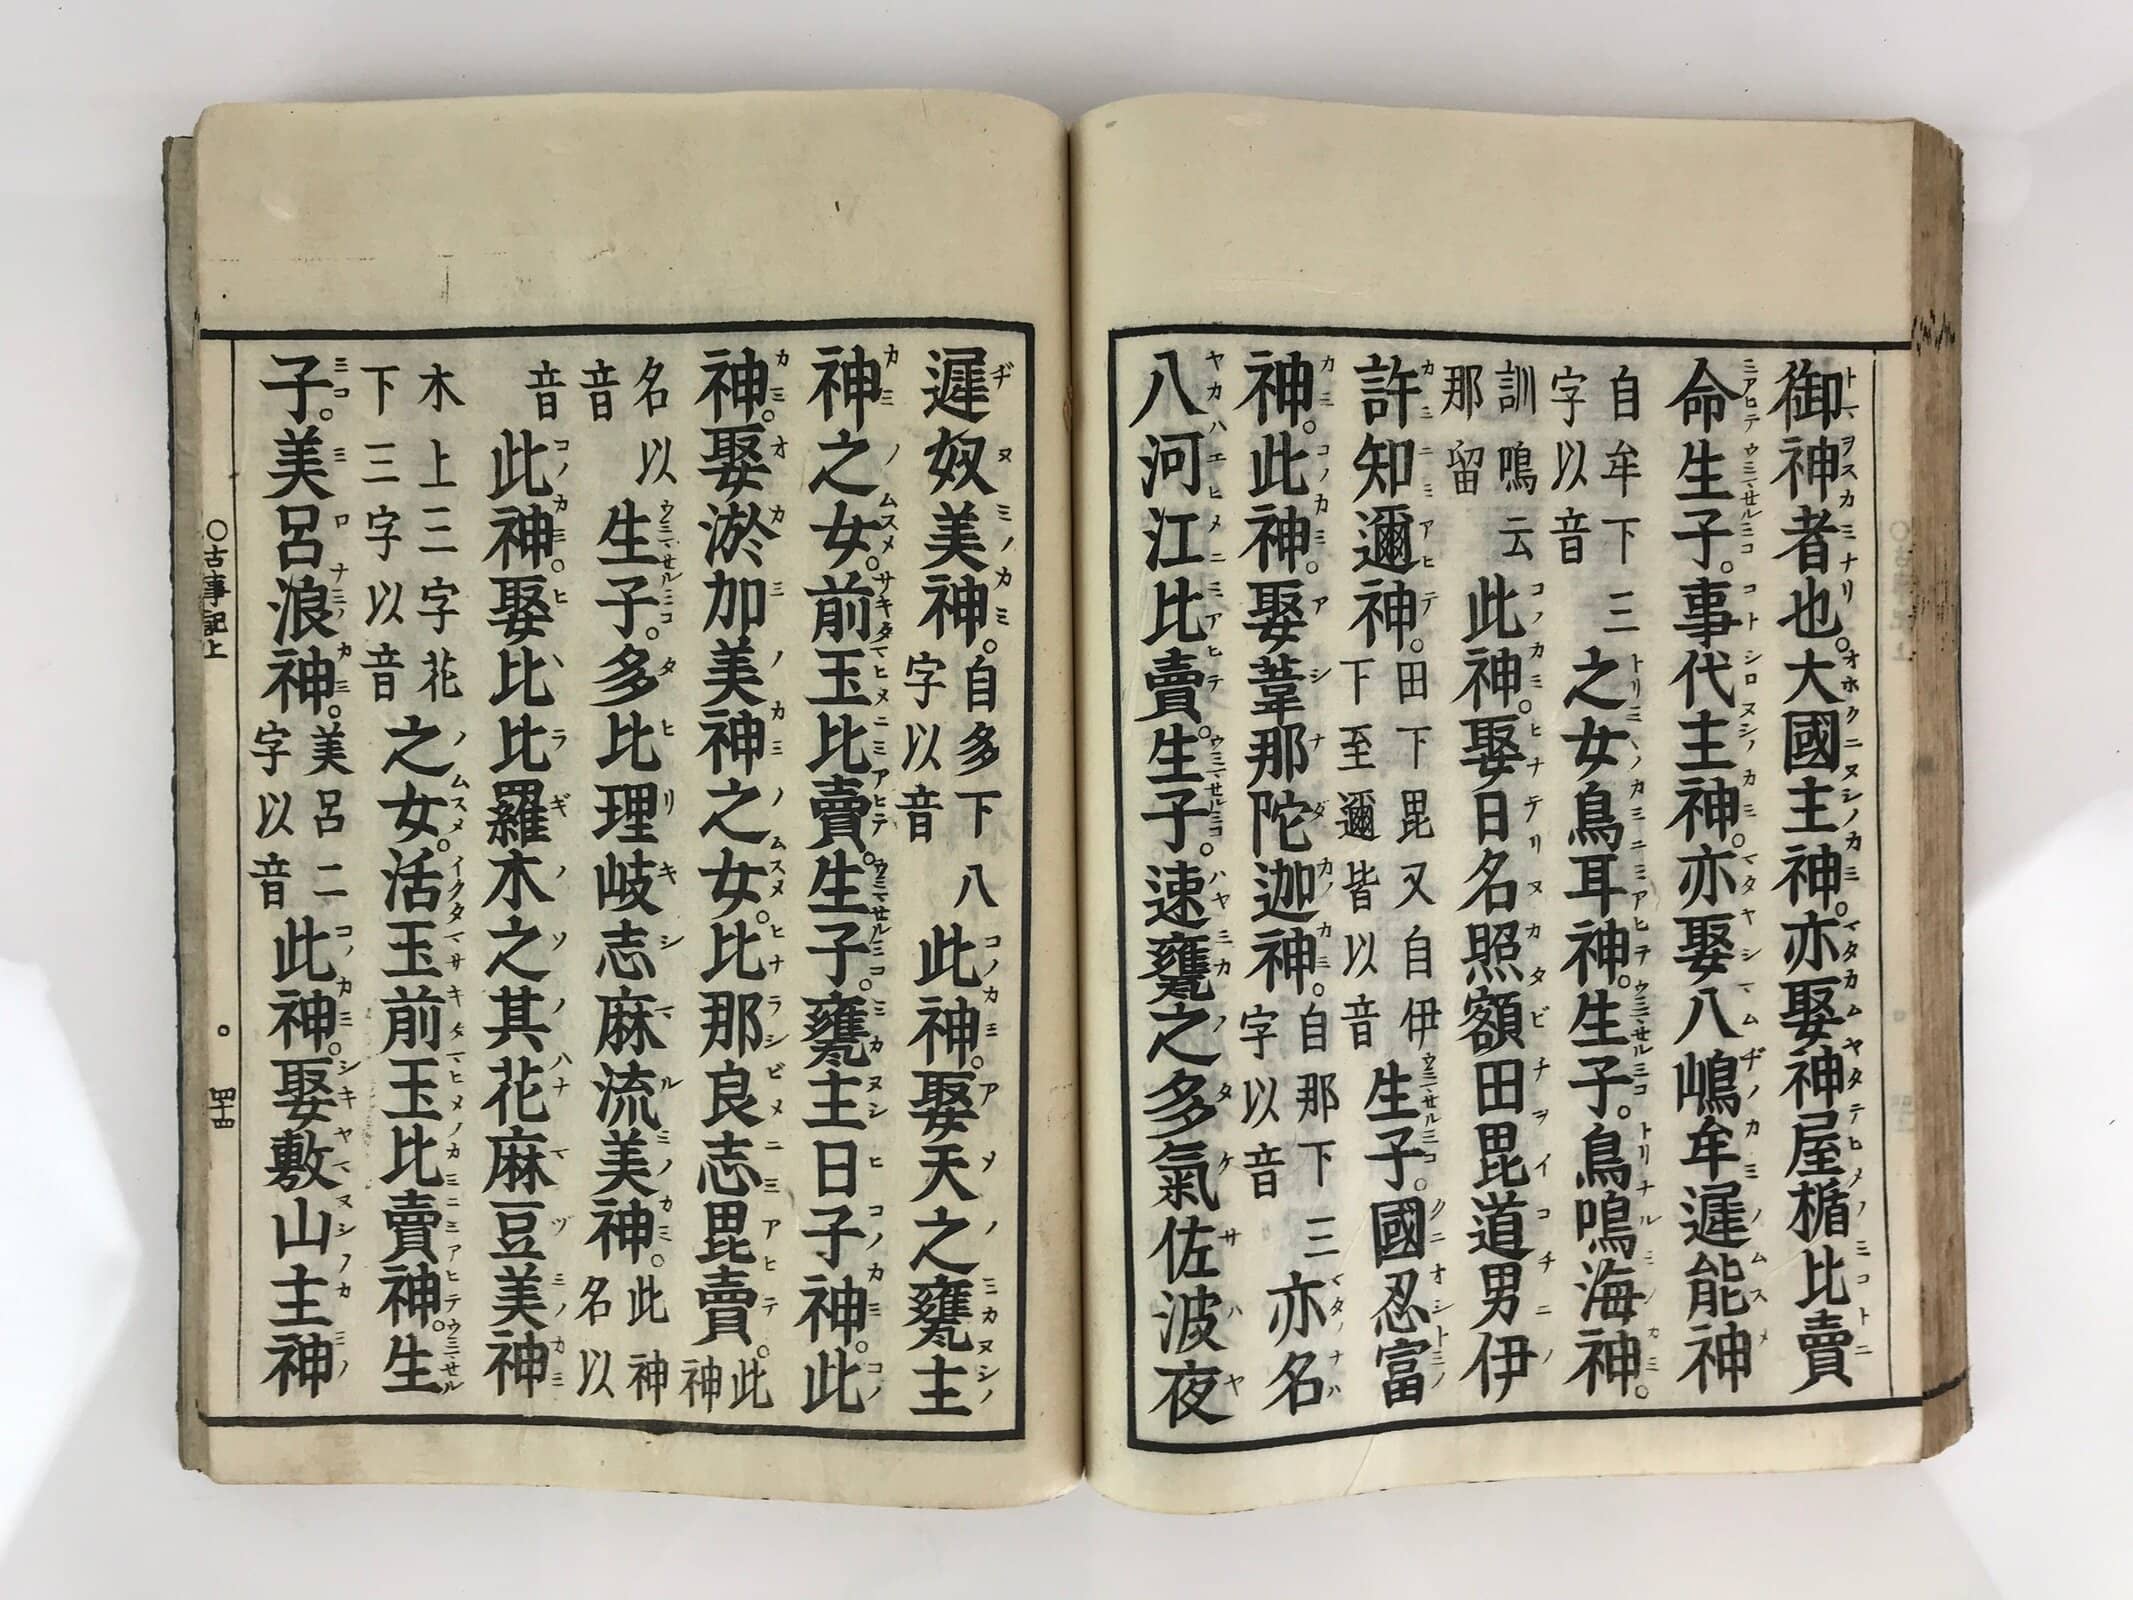 御神者也。大國主神。亦娶神屋楯比賣
命生子。事代主神。亦娶八嶋牟遲能神
自牟下三字以音之女鳥耳神。生子。鳥鳴海神。
訓鳴云那留此神。娶日名照額田毘道男伊
許知邇神。田下毘又自伊下至邇皆以音生子。國忍富
神。此神。娶葦那陀迦神。自那下三字以音亦名
八河江比賣。生子。速甕之多氣佐波夜
遲奴美神。自多下八字以音此神。娶天之甕主
神之女。前玉比賣。生子。甕主日子神。此
神。娶淤加美神之女。比那良志毘賣。此神
名以音生子。多比理岐志麻流美神。此神名以
音此神。娶比比羅木之其花麻豆美神
木上三字花下三字以音之女。活玉前玉比賣神。生
子。美呂浪神。美呂二字以音此神。娶敷山主神
○古事記上 四十四